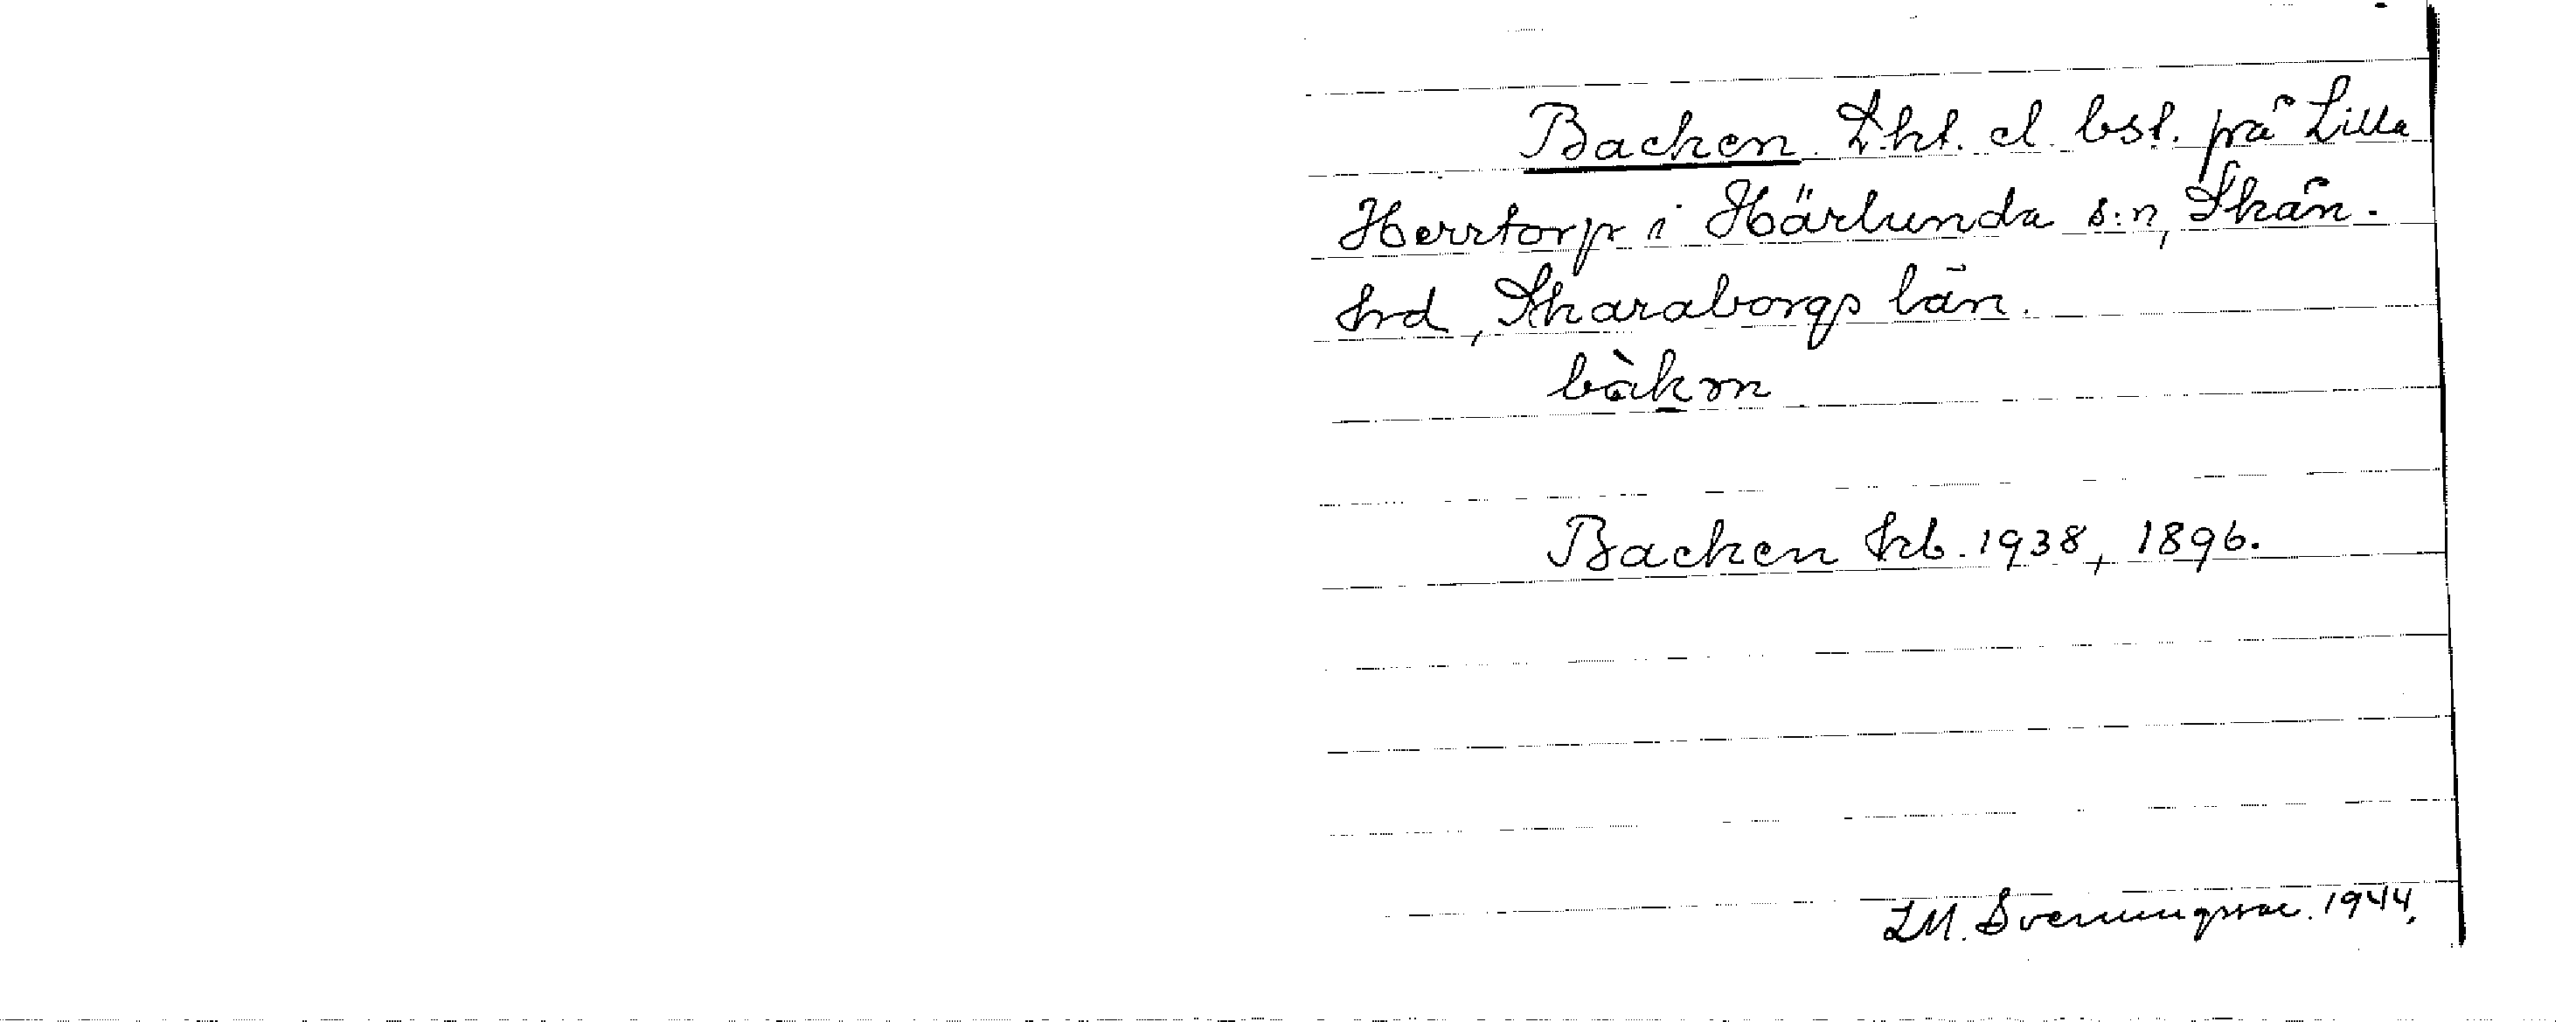 Backen. L.ht. el. bst. på Lilla
Herrtorp i Härlunda s:n, Skån.
hrd, Skaraborgs län.
bàkm
Backen hb. 1938, 1896.
Sveningsson. 1944.